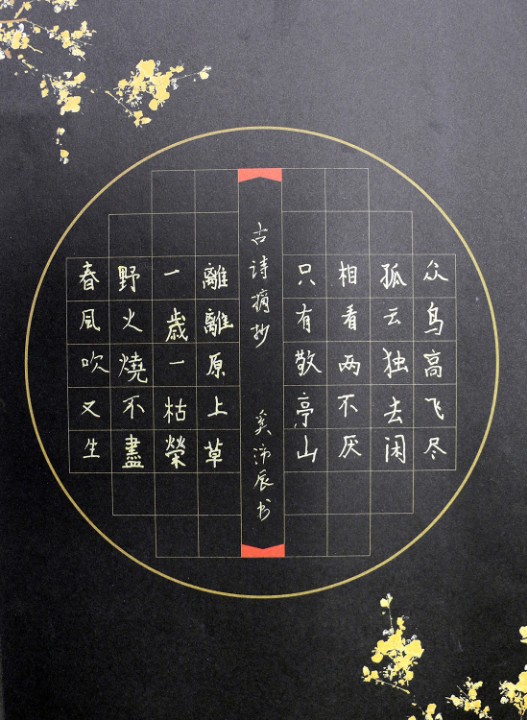 众鸟高飞尽
孤云独去闲
相看两不厌
只有敬亭山
古诗摘抄 奚沛辰书
離離原上草
一歳一枯榮
野火燒不盡
春风吹又生